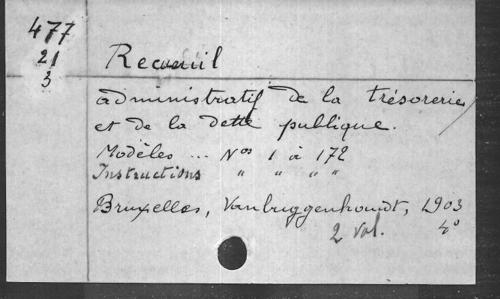 477
21
3
Recueil
administratif de la trésorerie
et de la dette publique.
Modèles ... Nos 1 à 172
Instructions " " " "
Bruxelles, Vanbuggenhoudt, 1903
2 vol. 4°